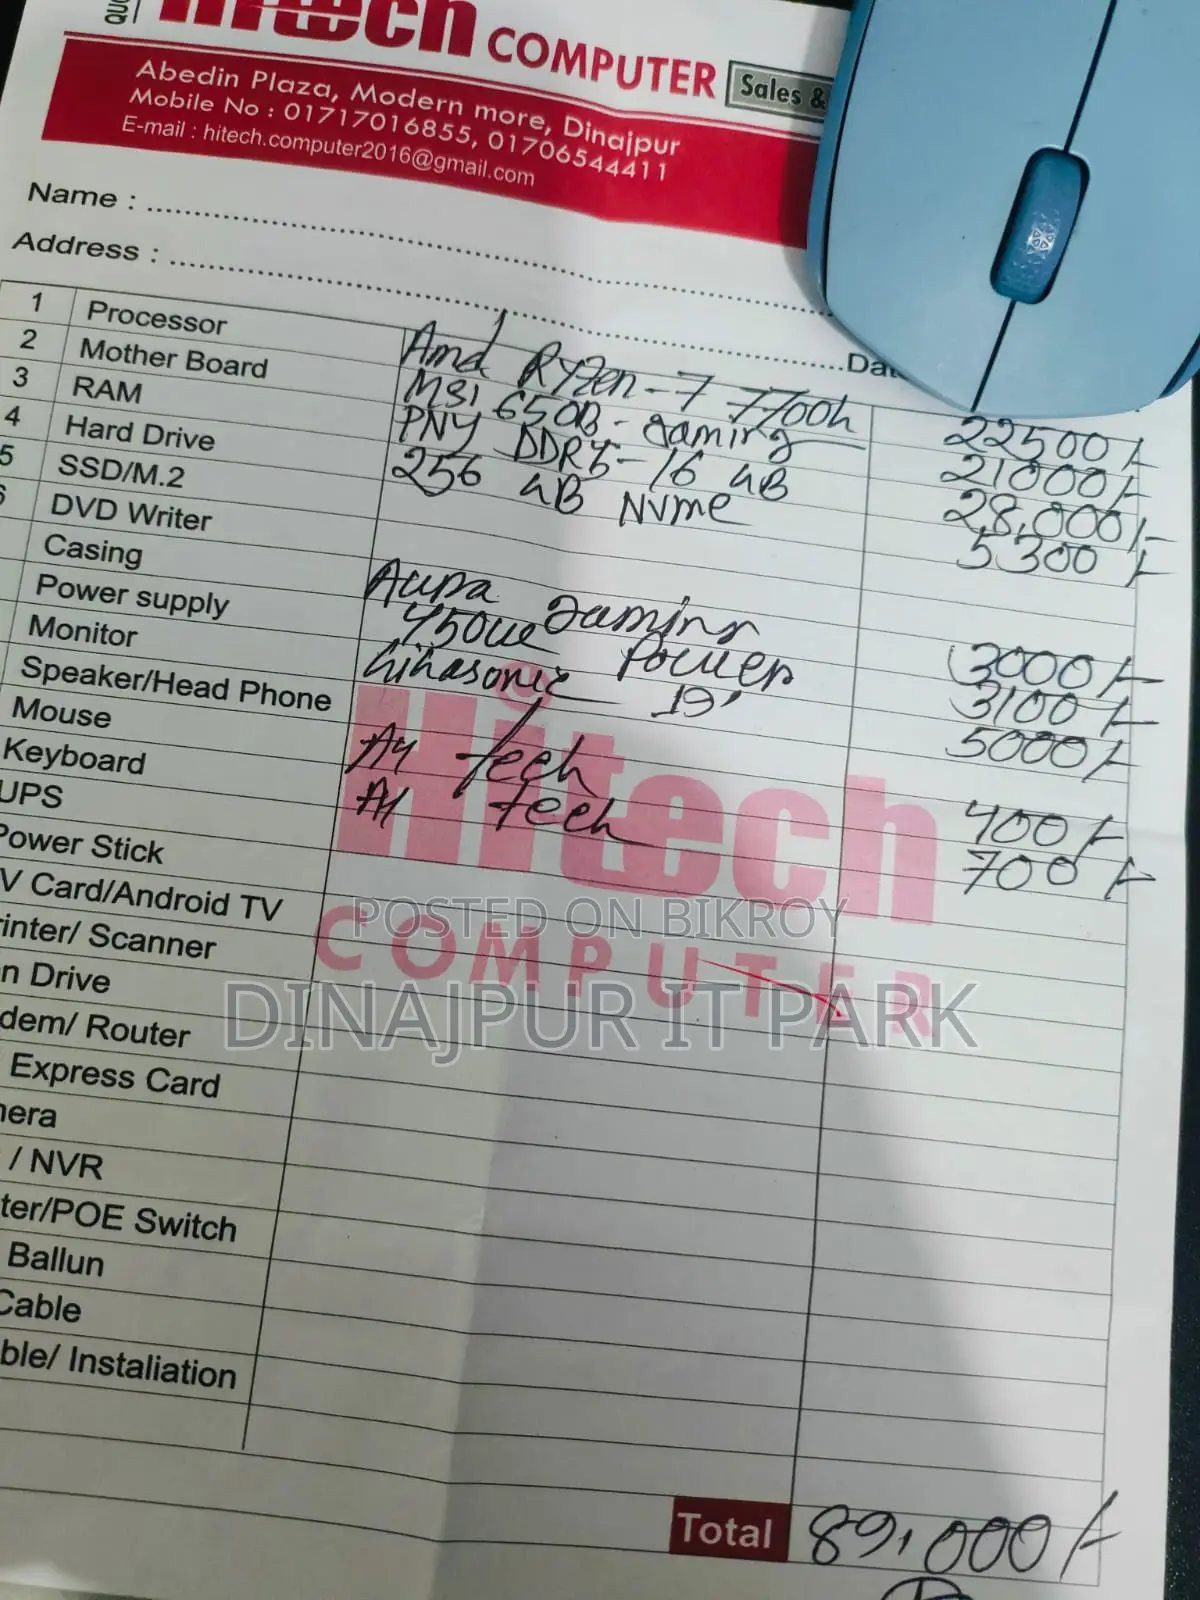 Hitech COMPUTER Sales &
Abedin Plaza, Modern more, Dinajpur
Mobile No : 01717016855, 01706544411
E-mail : hitech.computer2016@gmail.com
Name :
Address :
1 Processor Amd Ryzen-7 7700h 22500/-
2 Mother Board MSI 650B-gaming 21000/-
3 RAM PNY DDR5-16 GB 28,000/-
4 Hard Drive 256 GB NVme 5300/-
5 SSD/M.2
DVD Writer
Casing gaming 3000/-
Power supply 450w Power 3100/-
Monitor 19" 5000/-
Speaker/Head Phone
Mouse A4 tech 400/-
Keyboard A4 tech 700/-
UPS
Power Stick
V Card/Android TV
rinter/ Scanner
n Drive
dem/ Router
Express Card
nera
/ NVR
ter/POE Switch
Ballun
Cable
ble/ Instaliation
Hitech
COMPUTER
POSTED ON BIKROY
DINAJPUR IT PARK
Total 89,000/-